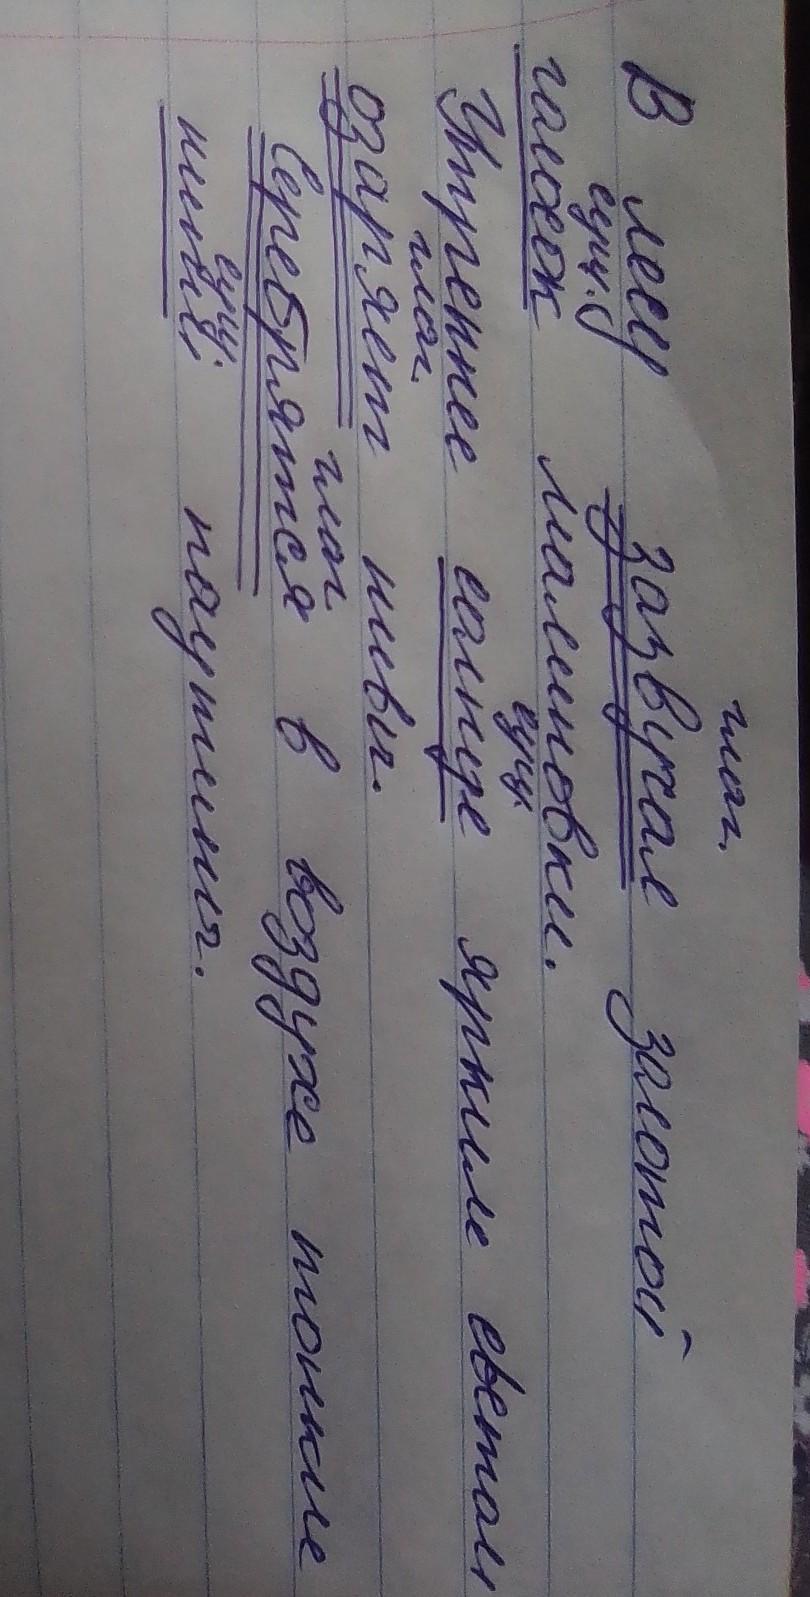 глаг.
В лесу зазвучал золотой
сущ.
голосок малиновки.
сущ.
Утреннее солнце ярким светом
глаг.
озаряет нивы.
глаг
Серебрятся в воздухе тонкие
сущ.
нити паутины.